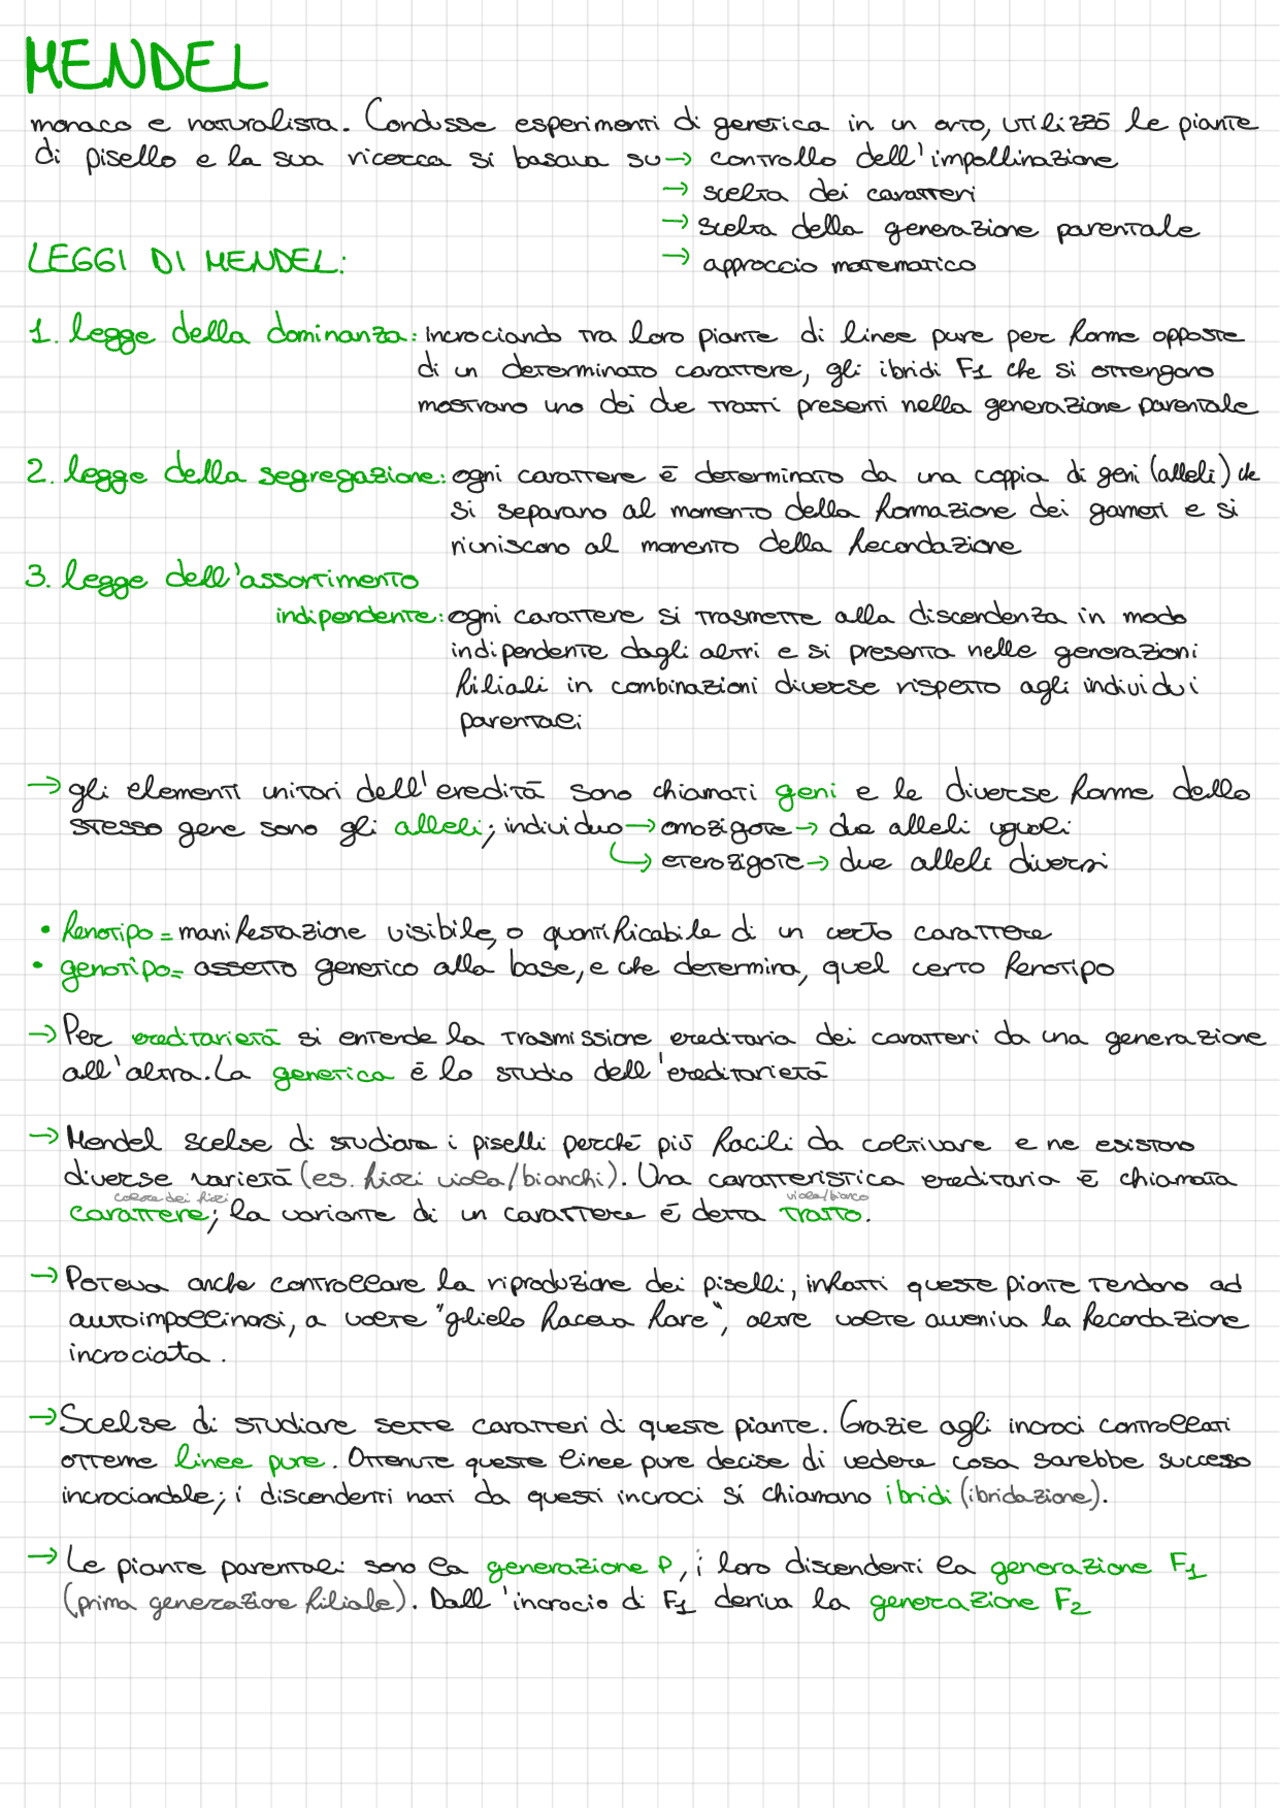 MENDEL
monaco e naturalista. Condusse esperimenti di genetica in un orto, utilizzò le piante
di pisello e la sua ricerca si basava su → controllo dell'impollinazione
→ scelta dei caratteri
→ scelta della generazione parentale
LEGGI DI MENDEL:
→ approccio matematico
1. legge della dominanza: incrociando tra loro piante di linee pure per forme opposte
di un determinato carattere, gli ibridi F1 che si ottengono
mostrano uno dei due tratti presenti nella generazione parentale
2. legge della segregazione: ogni carattere è determinato da una coppia di geni (alleli) che
si separano al momento della formazione dei gameti e si
riuniscono al momento della fecondazione
3. legge dell'assortimento
indipendente: ogni carattere si trasmette alla discendenza in modo
indipendente dagli altri e si presenta nelle generazioni
filiali in combinazioni diverse rispetto agli individui
parentali
→ gli elementi unitari dell'eredità sono chiamati geni e le diverse forme dello
stesso gene sono gli alleli; individuo → omozigote → due alleli uguali
↳ eterozigote → due alleli diversi
• fenotipo = manifestazione visibile, o quantificabile di un certo carattere
• genotipo = assetto genetico alla base, e che determina, quel certo fenotipo
→ Per ereditarietà si entende la trasmissione ereditaria dei caratteri da una generazione
all'altra. La genetica è lo studio dell'ereditarietà
→ Mendel scelse di studiare i piselli perché più facili da coltivare e ne esistono
diverse varietà (es. fiori viola/bianchi). Una caratteristica ereditaria è chiamata
colore dei fiori viola/bianco
carattere; la variante di un carattere è detta tratto.
→ Poteva anche controllare la riproduzione dei piselli, infatti queste piante tendono ad
autoimpollinarsi, a volte "glielo faceva fare", altre volte avveniva la fecondazione
incrociata.
→ Scelse di studiare sette caratteri di queste piante. Grazie agli incroci controllati
ottenne linee pure. Ottenute queste linee pure decise di vedere cosa sarebbe successo
incrociandole; i discendenti nati da questi incroci si chiamano ibridi (ibridazione).
→ Le piante parentali sono la generazione P, i loro discendenti la generazione F1
(prima generazione filiale). Dall'incrocio di F1 deriva la generazione F2